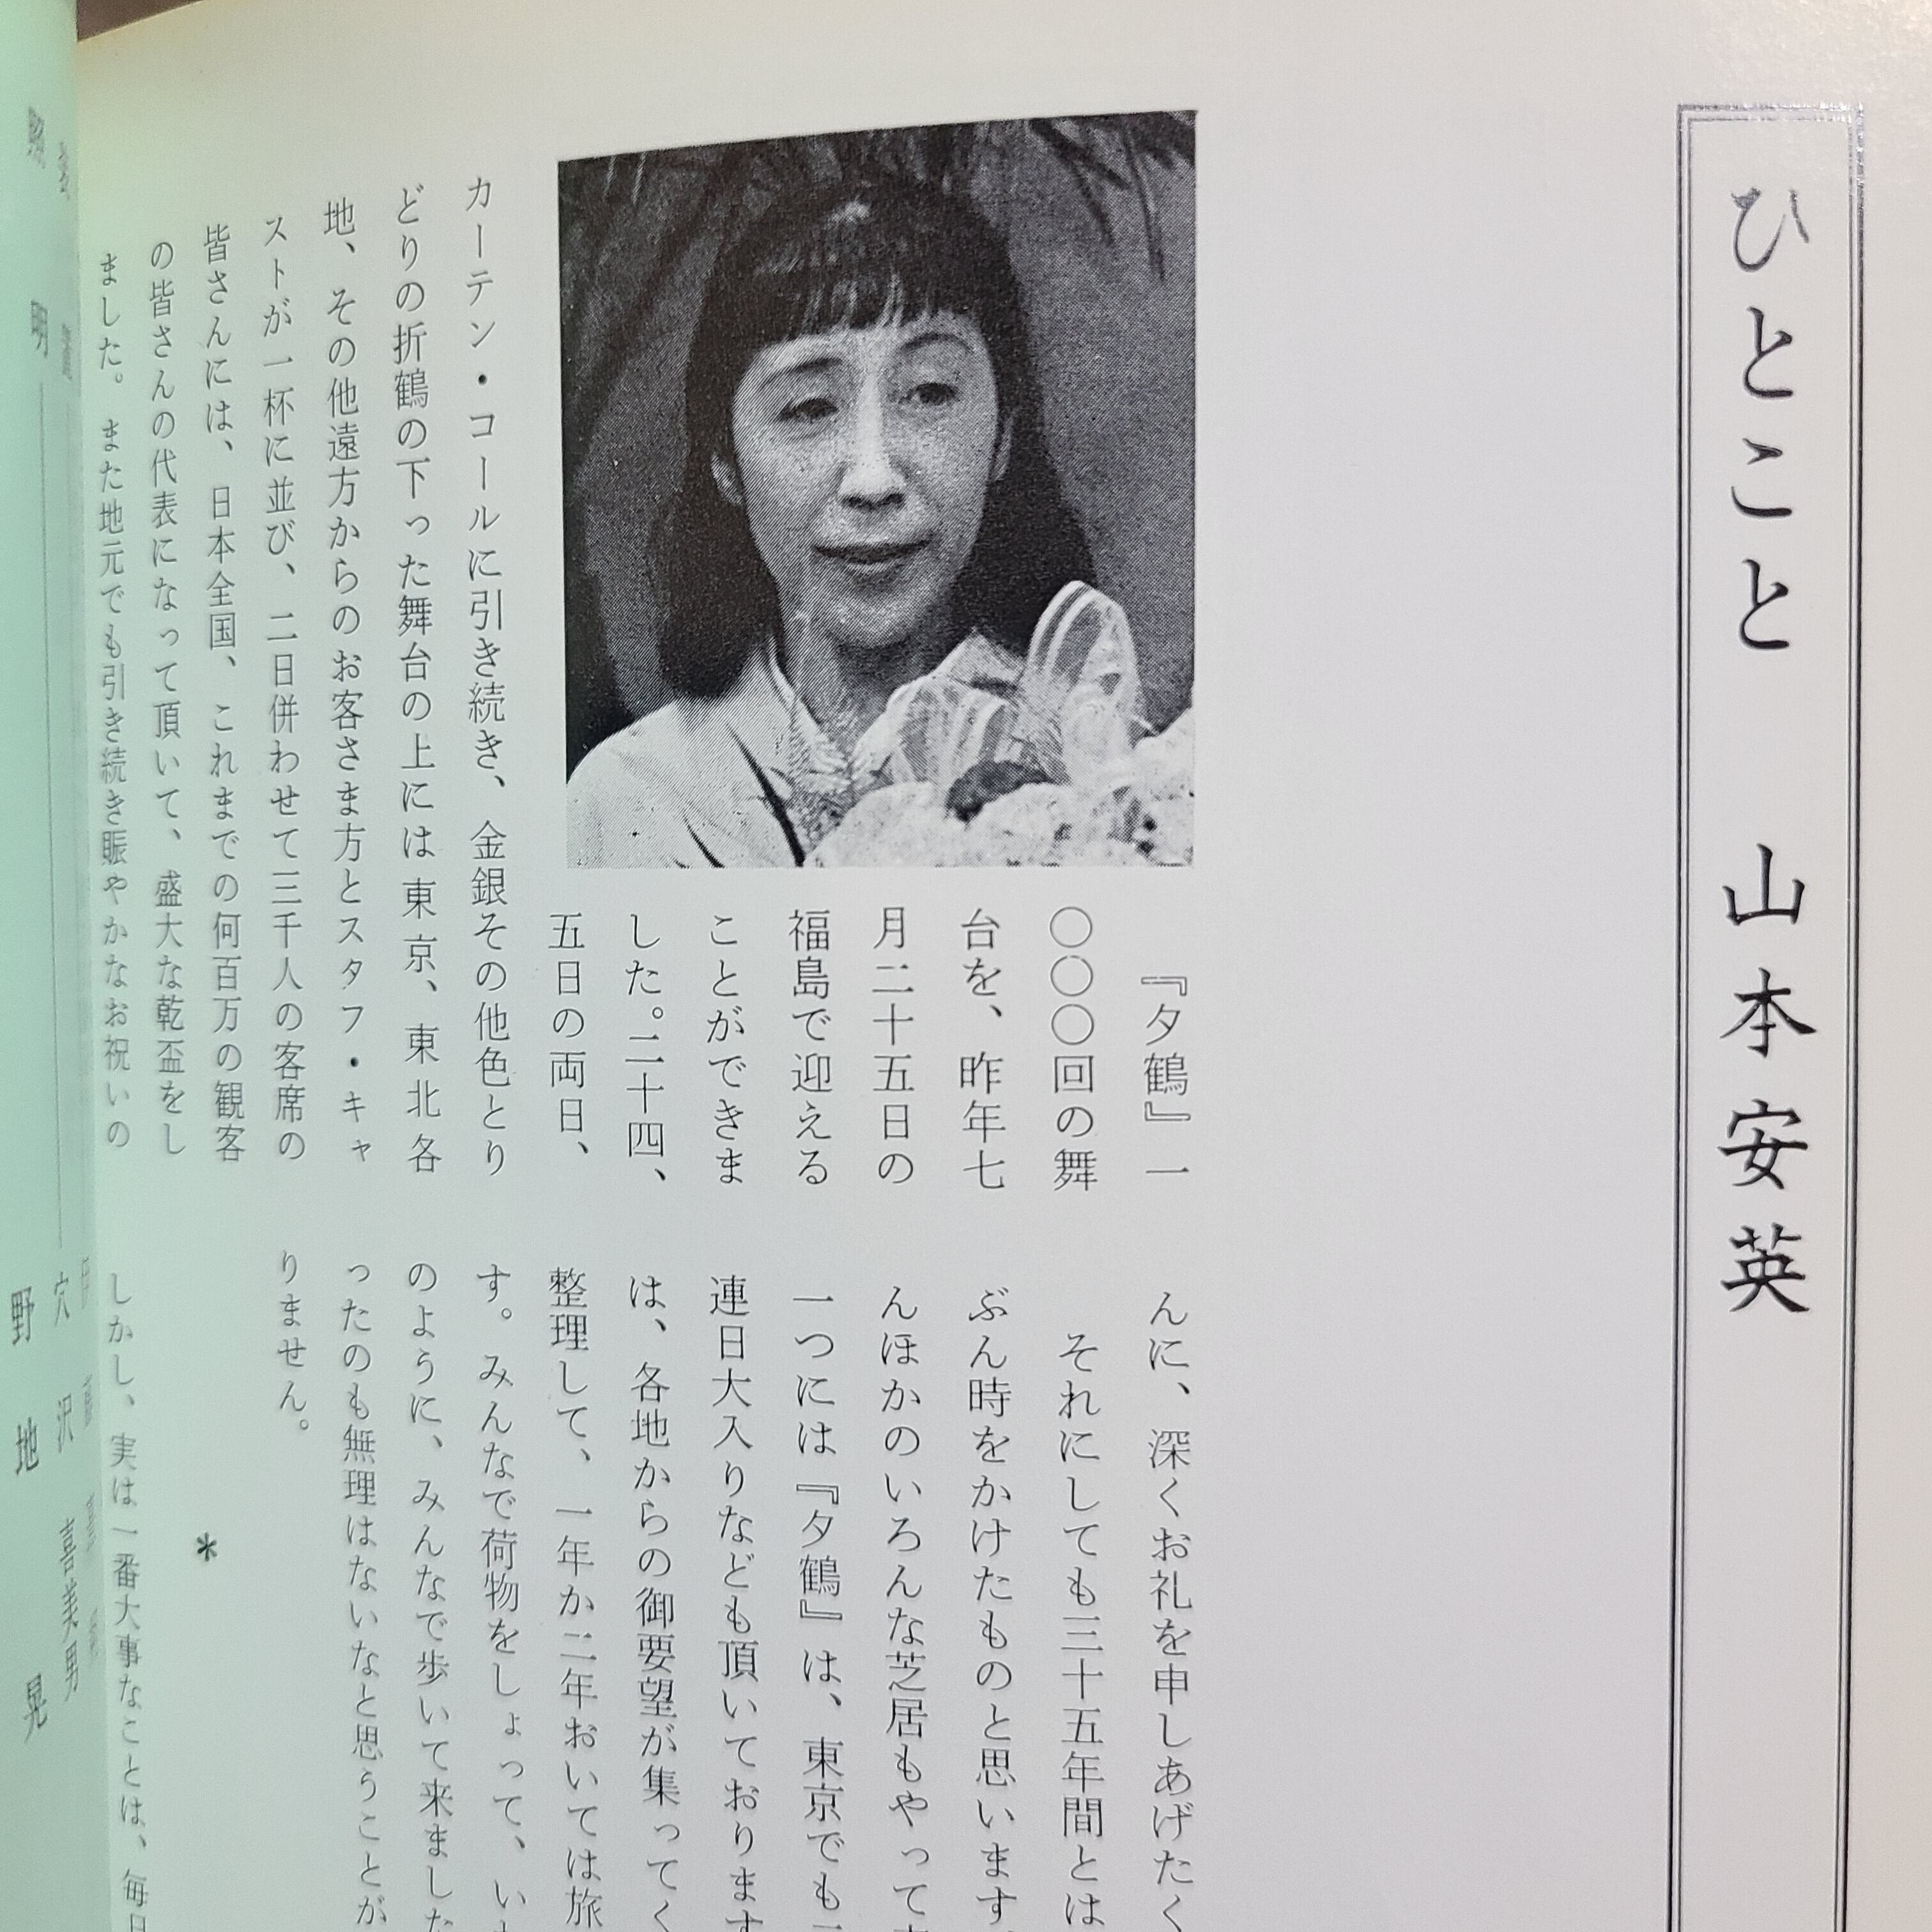 ひとこと 山本安英
『夕鶴』一
〇〇〇回の舞
台を、昨年七
月二十五日の
福島で迎える
ことができま
した。二十四、
五日の両日、
カーテン・コールに引き続き、金銀その他色とり
どりの折鶴の下った舞台の上には東京、東北各
地、その他遠方からのお客さま方とスタフ・キャ
ストが一杯に並び、二日併わせて三千人の客席の
皆さんには、日本全国、これまでの何百万の観客
の皆さんの代表になって頂いて、盛大な乾盃をし
ました。また地元でも引き続き賑やかなお祝いの
んに、深くお礼を申しあげたく
それにしても三十五年間とは
ぶん時をかけたものと思います
んほかのいろんな芝居もやって
一つには『夕鶴』は、東京でも
連日大入りなども頂いております
は、各地からの御要望が集ってく
整理して、一年か二年おいては旅
す。みんなで荷物をしょって、い
のように、みんなで歩いて来ました
ったのも無理はないなと思うことが
りません。
*
しかし、実は一番大事なことは、毎日
穴沢喜美男
照明
野地晃